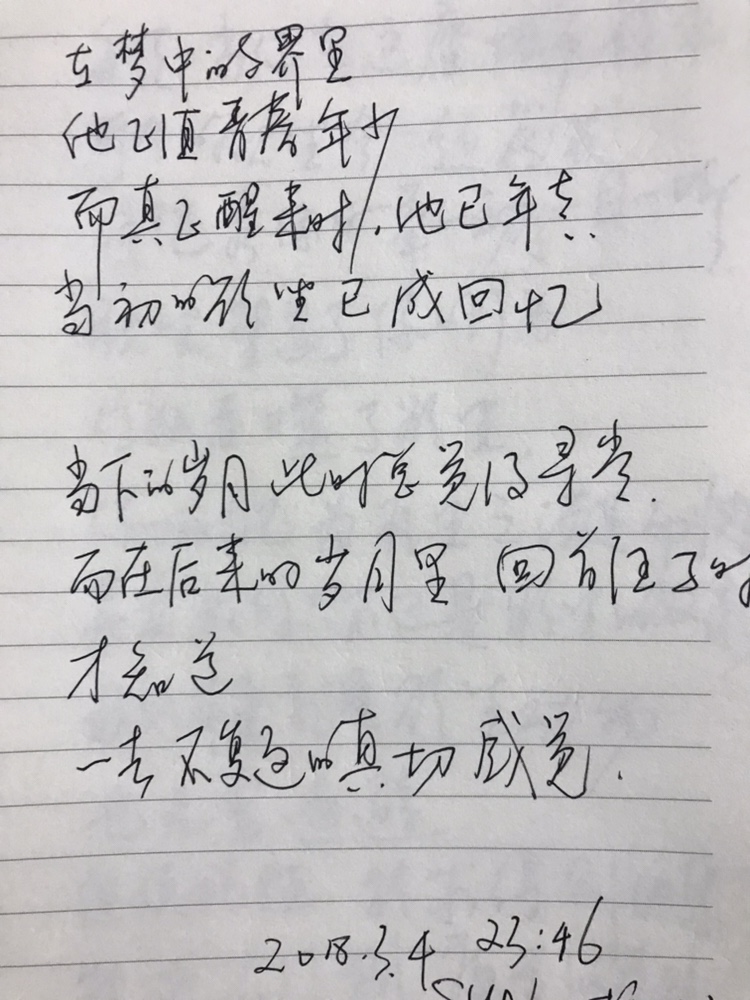 在梦中的世界里
他正值青春年少
而真正醒来时,他已年去.
当初的 已成回忆
当下的岁月 此时总觉得寻常.
而在后来的岁月里 回首往
才知道
一去不复返的真切感觉.
2018.3.4 23:46
SUN